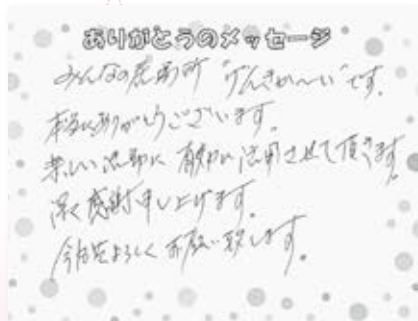 ありがとうのメッセージ
みんなの居場所 "げんきか〜い"です。
本当にありがとうございます。
楽しい活動に 有効に活用させて頂きます。
深く感謝申し上げます。
今後共よろしくお願い致します。